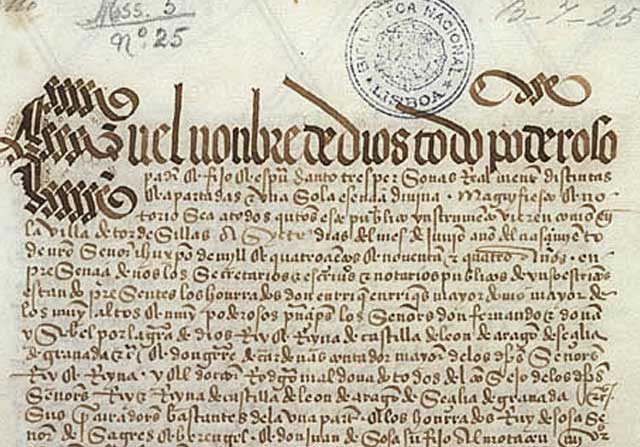 Mss. 5
nº 25
B-7-25
BIBLIOTECA NACIONAL
LISBOA
En el nonbre de dios todo poderoso
padre & fijo & espu santo tres personas Real mente distintas
& apartadas & vna Sola esençia diuina . Magnifiesto & no
torio Sea a todos qntos este publico ynstrumeto vieren como en
la villa de tordesillas A Syete dias del mes de Junio año del nasçimyento
de nro Señor ihu xpo de myll & quatroçientos & nouenta & quatro Años . en
presençia de nos los Secretarios & escriuos & notarios publicos de yuso escritos
estando presentes los honrrados don enrriq enrriques mayordomo mayor de
los muy altos & muy poderosos prinçipes los Señores don fernando & doña
ysabel por la gra de dios Rey & Reyna de castilla de leon de aragon de seçilia
de granada & don gutierre de cardenas contador mayor de los dhos Señores
Rey & Reyna . y el doctor Rodrigo maldonado todos del conSejo de los dhos
Señores Rey & Reyna de castilla de leon de aragon de Seçilia de granada
Sus procuradores bastantes de la vna parte & los honrrados Ruy de sosa Se
ñor de Sagres & berengel & don Juan de Sosa su fijo Almotaçen